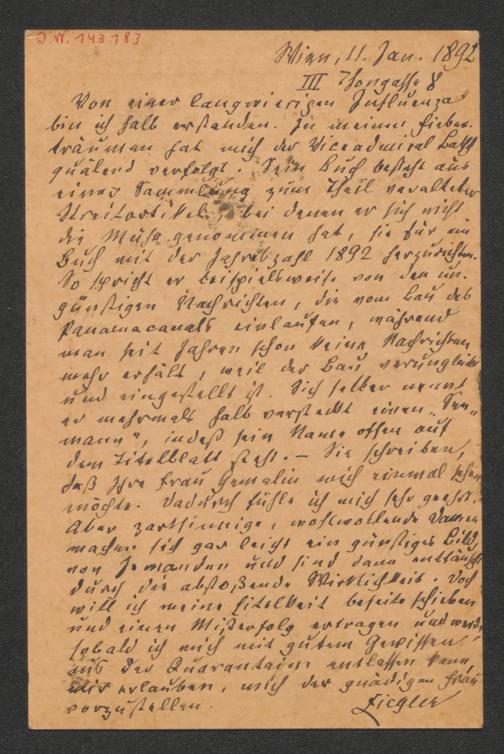 J.N. 143.183
Wien, 11. Jan. 1892
III Thongasse 8
Von einer langwierigen Influenza
bin ich halb erstanden. In meinen Fieber-
träumen hat mich der Viceadmiral Batsch
quälend verfolgt. Sein Buch besteht aus
einer Sammlung zum Theil veralteter
Streitartikel, bei denen er sich nicht
die Mühe genommen hat, sie für ein
Buch mit der Jahrzahl 1892 herzurichten.
So spricht er beispielsweise von den un-
günstigen Nachrichten, die vom Bau des
Panamacanals einlaufen, während
man seit Jahren schon keine Nachrichten
mehr erhält, weil der Bau verunglückt
und eingestellt ist. Sich selber nennt
er mehrmals halb versteckt einen „See-
mann“, indeß sein Name offen auf
dem Titelblatt steht. – Sie schreiben,
daß Ihre Frau Gemalin mich einmal sehen
möchte. Dadurch fühle ich mich sehr geehrt.
Aber zartsinnige, wohlwollende Damen
machen sich gar leicht ein günstiges Bild
von Jemanden und sind dann enttäuscht
durch die abstoßende Wirklichkeit. Doch
will ich meine Eitelkeit beiseite schieben
und einen Mißerfolg ertragen und werde,
sobald ich mich mit gutem Gewissen
aus der Quarantaine entlassen kann,
mir erlauben, mich der gnädigen Frau
vorzustellen. Ziegler